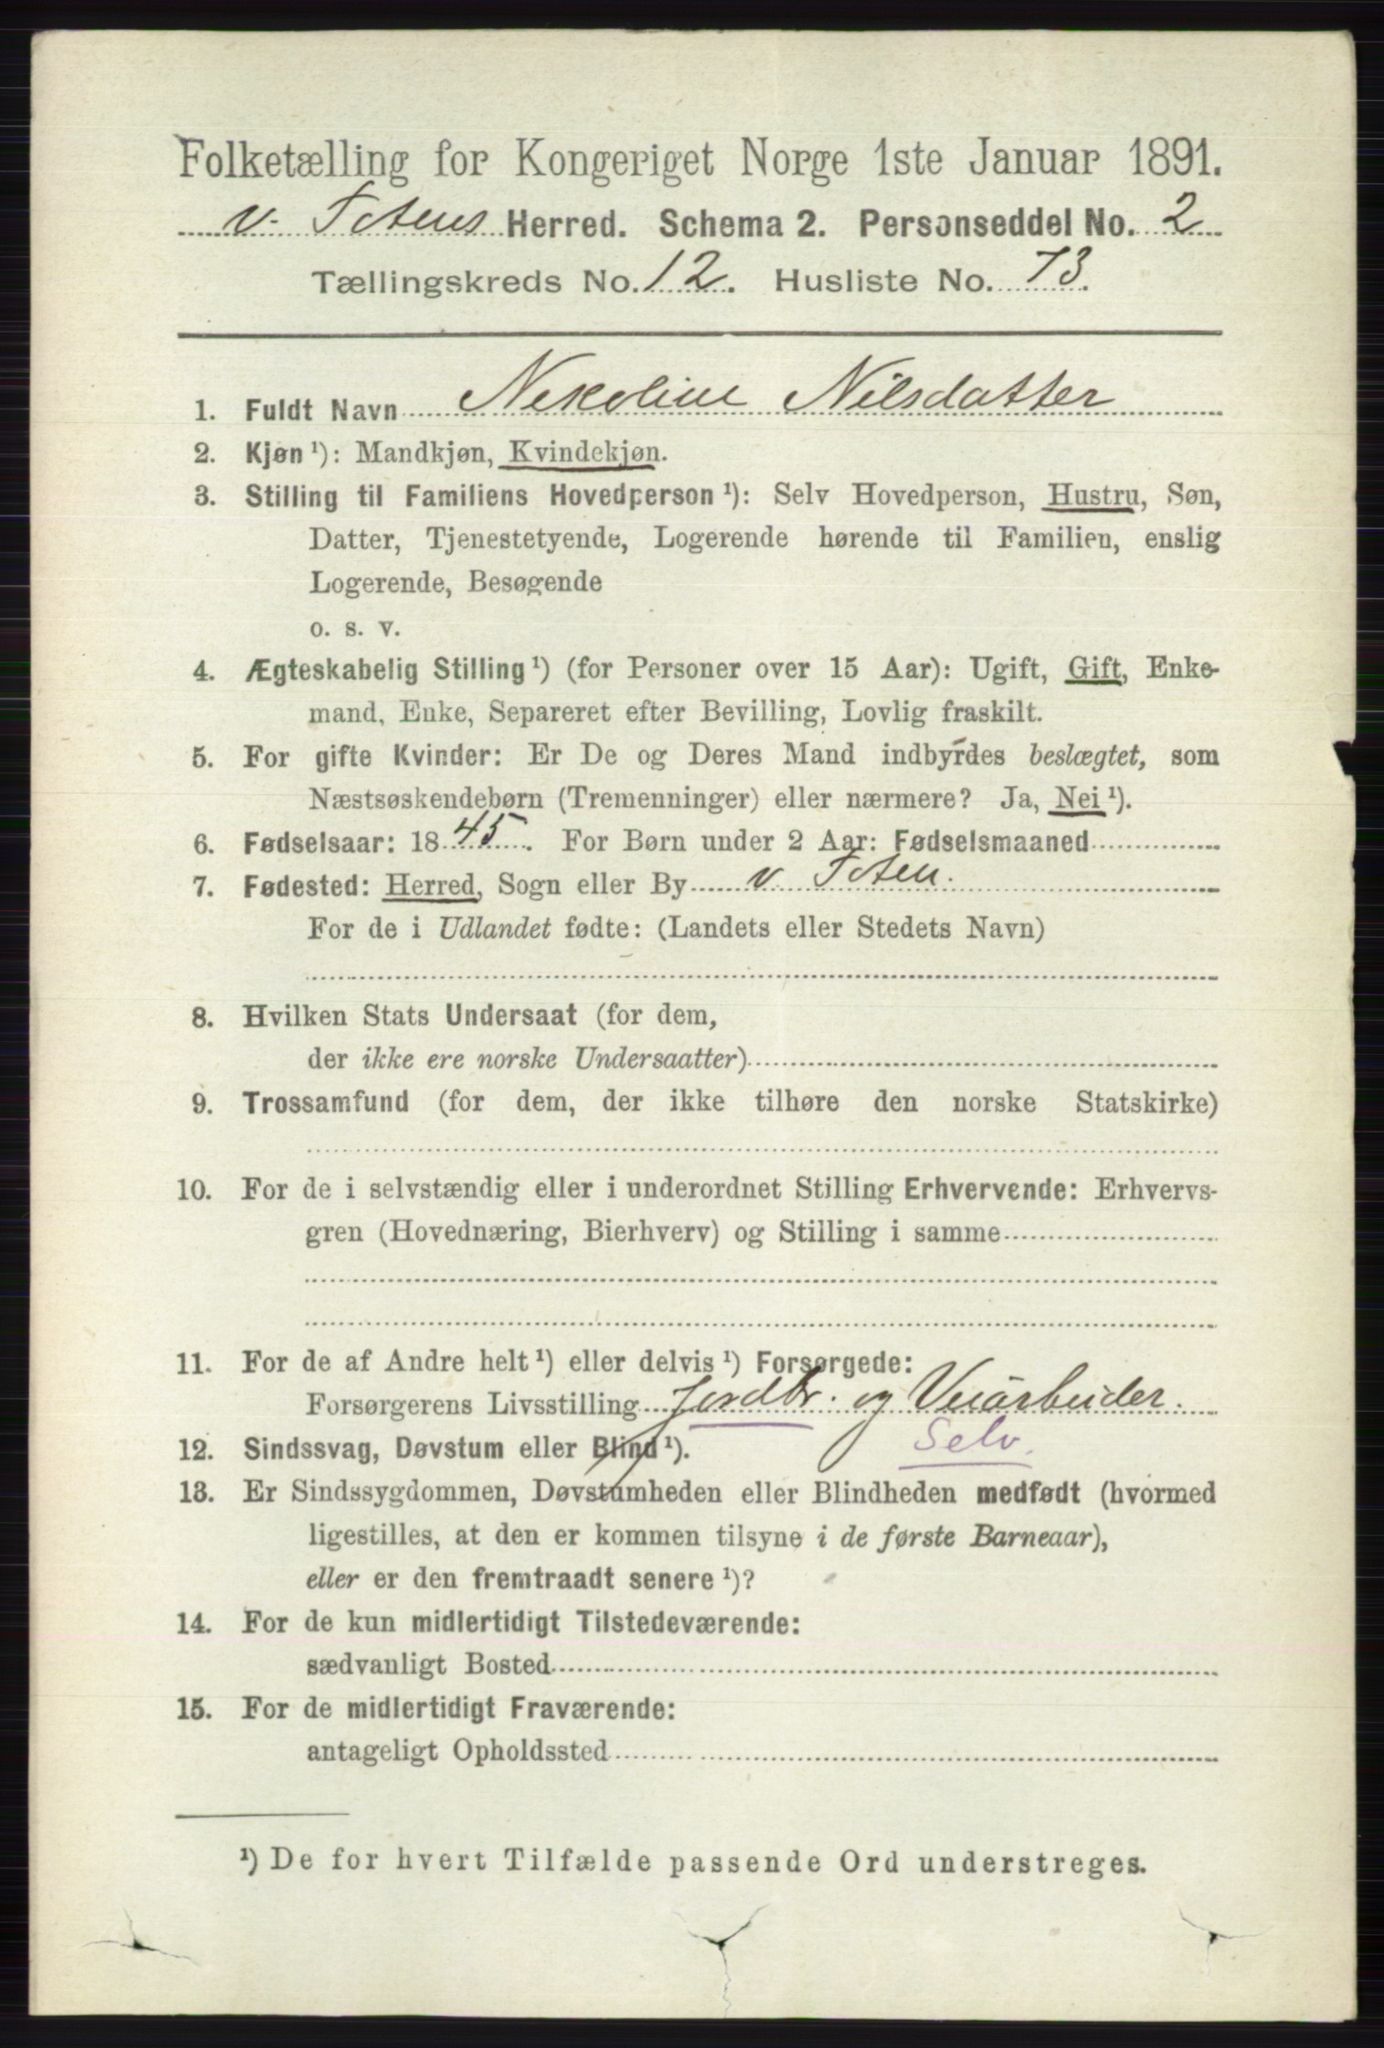 Folketælling for Kongeriget Norge 1ste Januar 1891.
v. Totens Herred. Schema 2. Personseddel No. 2
Tællingskreds No. 12. Husliste No. 73.
1. Fuldt Navn Nekoline Nilsdatter
2. Kjøn ¹): Mandkjøn, Kvindekjøn.
3. Stilling til Familiens Hovedperson ¹): Selv Hovedperson, Hustru, Søn,
Datter, Tjenestetyende, Logerende hørende til Familien, enslig
Logerende, Besøgende
o. s. v.
4. Ægteskabelig Stilling ¹) (for Personer over 15 Aar): Ugift, Gift, Enke-
mand, Enke, Separeret efter Bevilling, Lovlig fraskilt.
5. For gifte Kvinder: Er De og Deres Mand indbyrdes beslægtet, som
Næstsøskendebørn (Tremenninger) eller nærmere? Ja, Nei ¹).
6. Fødselsaar: 1845. For Børn under 2 Aar: Fødselsmaaned
7. Fødested: Herred, Sogn eller By v. Toten.
For de i Udlandet fødte: (Landets eller Stedets Navn)
8. Hvilken Stats Undersaat (for dem,
der ikke ere norske Undersaatter)
9. Trossamfund (for dem, der ikke tilhøre den norske Statskirke)
10. For de i selvstændig eller i underordnet Stilling Erhvervende: Erhvervs-
gren (Hovednæring, Bierhverv) og Stilling i samme
11. For de af Andre helt ¹) eller delvis ¹) Forsørgede:
Forsørgerens Livsstilling Jordbr. og Veiarbeider.
12. Sindssvag, Døvstum eller Blind ¹). Selv.
13. Er Sindssygdommen, Døvstumheden eller Blindheden medfødt (hvormed
ligestilles, at den er kommen tilsyne i de første Barneaar),
eller er den fremtraadt senere ¹)?
14. For de kun midlertidigt Tilstedeværende:
sædvanligt Bosted
15. For de midlertidigt Fraværende:
antageligt Opholdssted
¹) De for hvert Tilfælde passende Ord understreges.